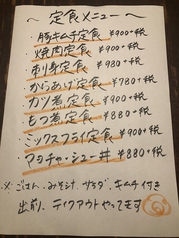 ~ 定食メニュー ~
豚キムチ定食 ¥900+税
焼肉定食 ¥900+税
刺身定食 ¥980+税
からあげ定食 ¥780+税
カツ煮定食 ¥900+税
もつ煮定食 ¥880+税
ミックスフライ定食 ¥900+税
チャーシュー丼 ¥880+税
※ ごはん、みそ汁、サラダ、キムチ付き
出前、テイクアウトやってます